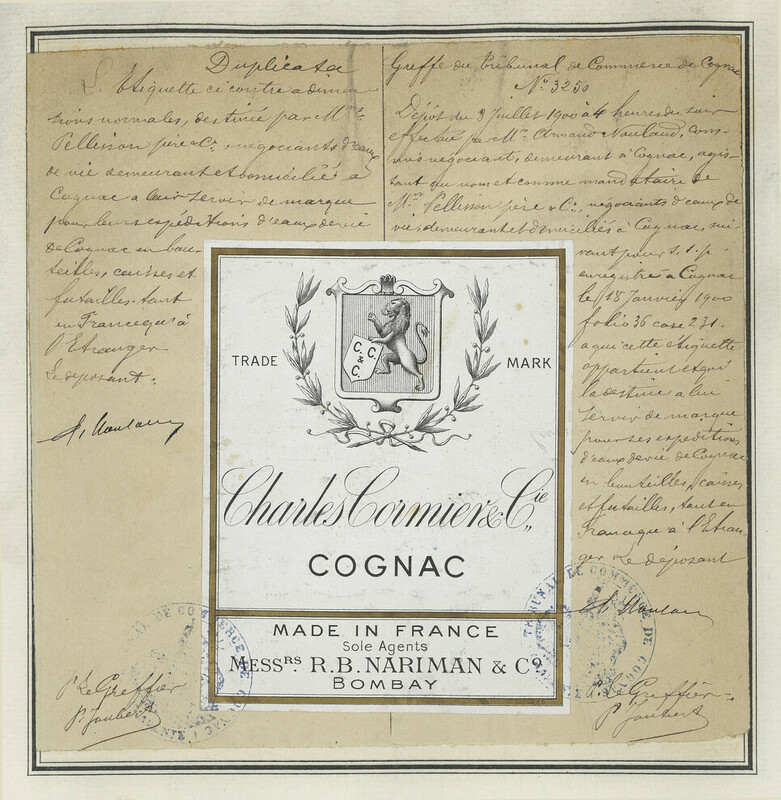 Duplicata
L'Etiquette ci contre a dimen
sions normales, destinée par Mrs
Pellisson père & Cie négociants d'eaux
de vie demeurant et domiciliés à
Cognac a leur servir de marque
pour leurs expéditions d'eaux de vie
de Cognac en bou
teilles, caisses et
futailles tant
en France qu'à
l'Etranger
Le déposant.
P. Le Greffier
P. Joubert
Greffe du Tribunal de Commerce de Cognac
No 3250
Dépôt du 3 Juillet 1900 à 4 heures du soir
effectué par Mr Armand Naulaud, com-
mis négociant, demeurant à Cognac, agis-
sant au nom et comme mandataire de
Mrs Pellisson père & Cie, négociants d'eaux de
vie demeurant et domiciliés à Cognac, sui-
vant pour s. s. p.
enregistré à Cognac
le 18 Janvier 1900
folio 36 case 231.
a qui cette étiquette
appartient et qui
la destine a lui
servir de marque
pour ses expéditions
d'eaux de vie de Cognac
en bouteilles, caisses
et futailles, tant en
France qu'à l'Etran
ger Le déposant
P. Le Greffier
P. Joubert
TRADE MARK
C. C. & C.
Charles Cormier & Cie
COGNAC
MADE IN FRANCE
Sole Agents
MESSRS R.B. NARIMAN & Co
BOMBAY
TRIBUNAL DE COMMERCE DE COGNAC